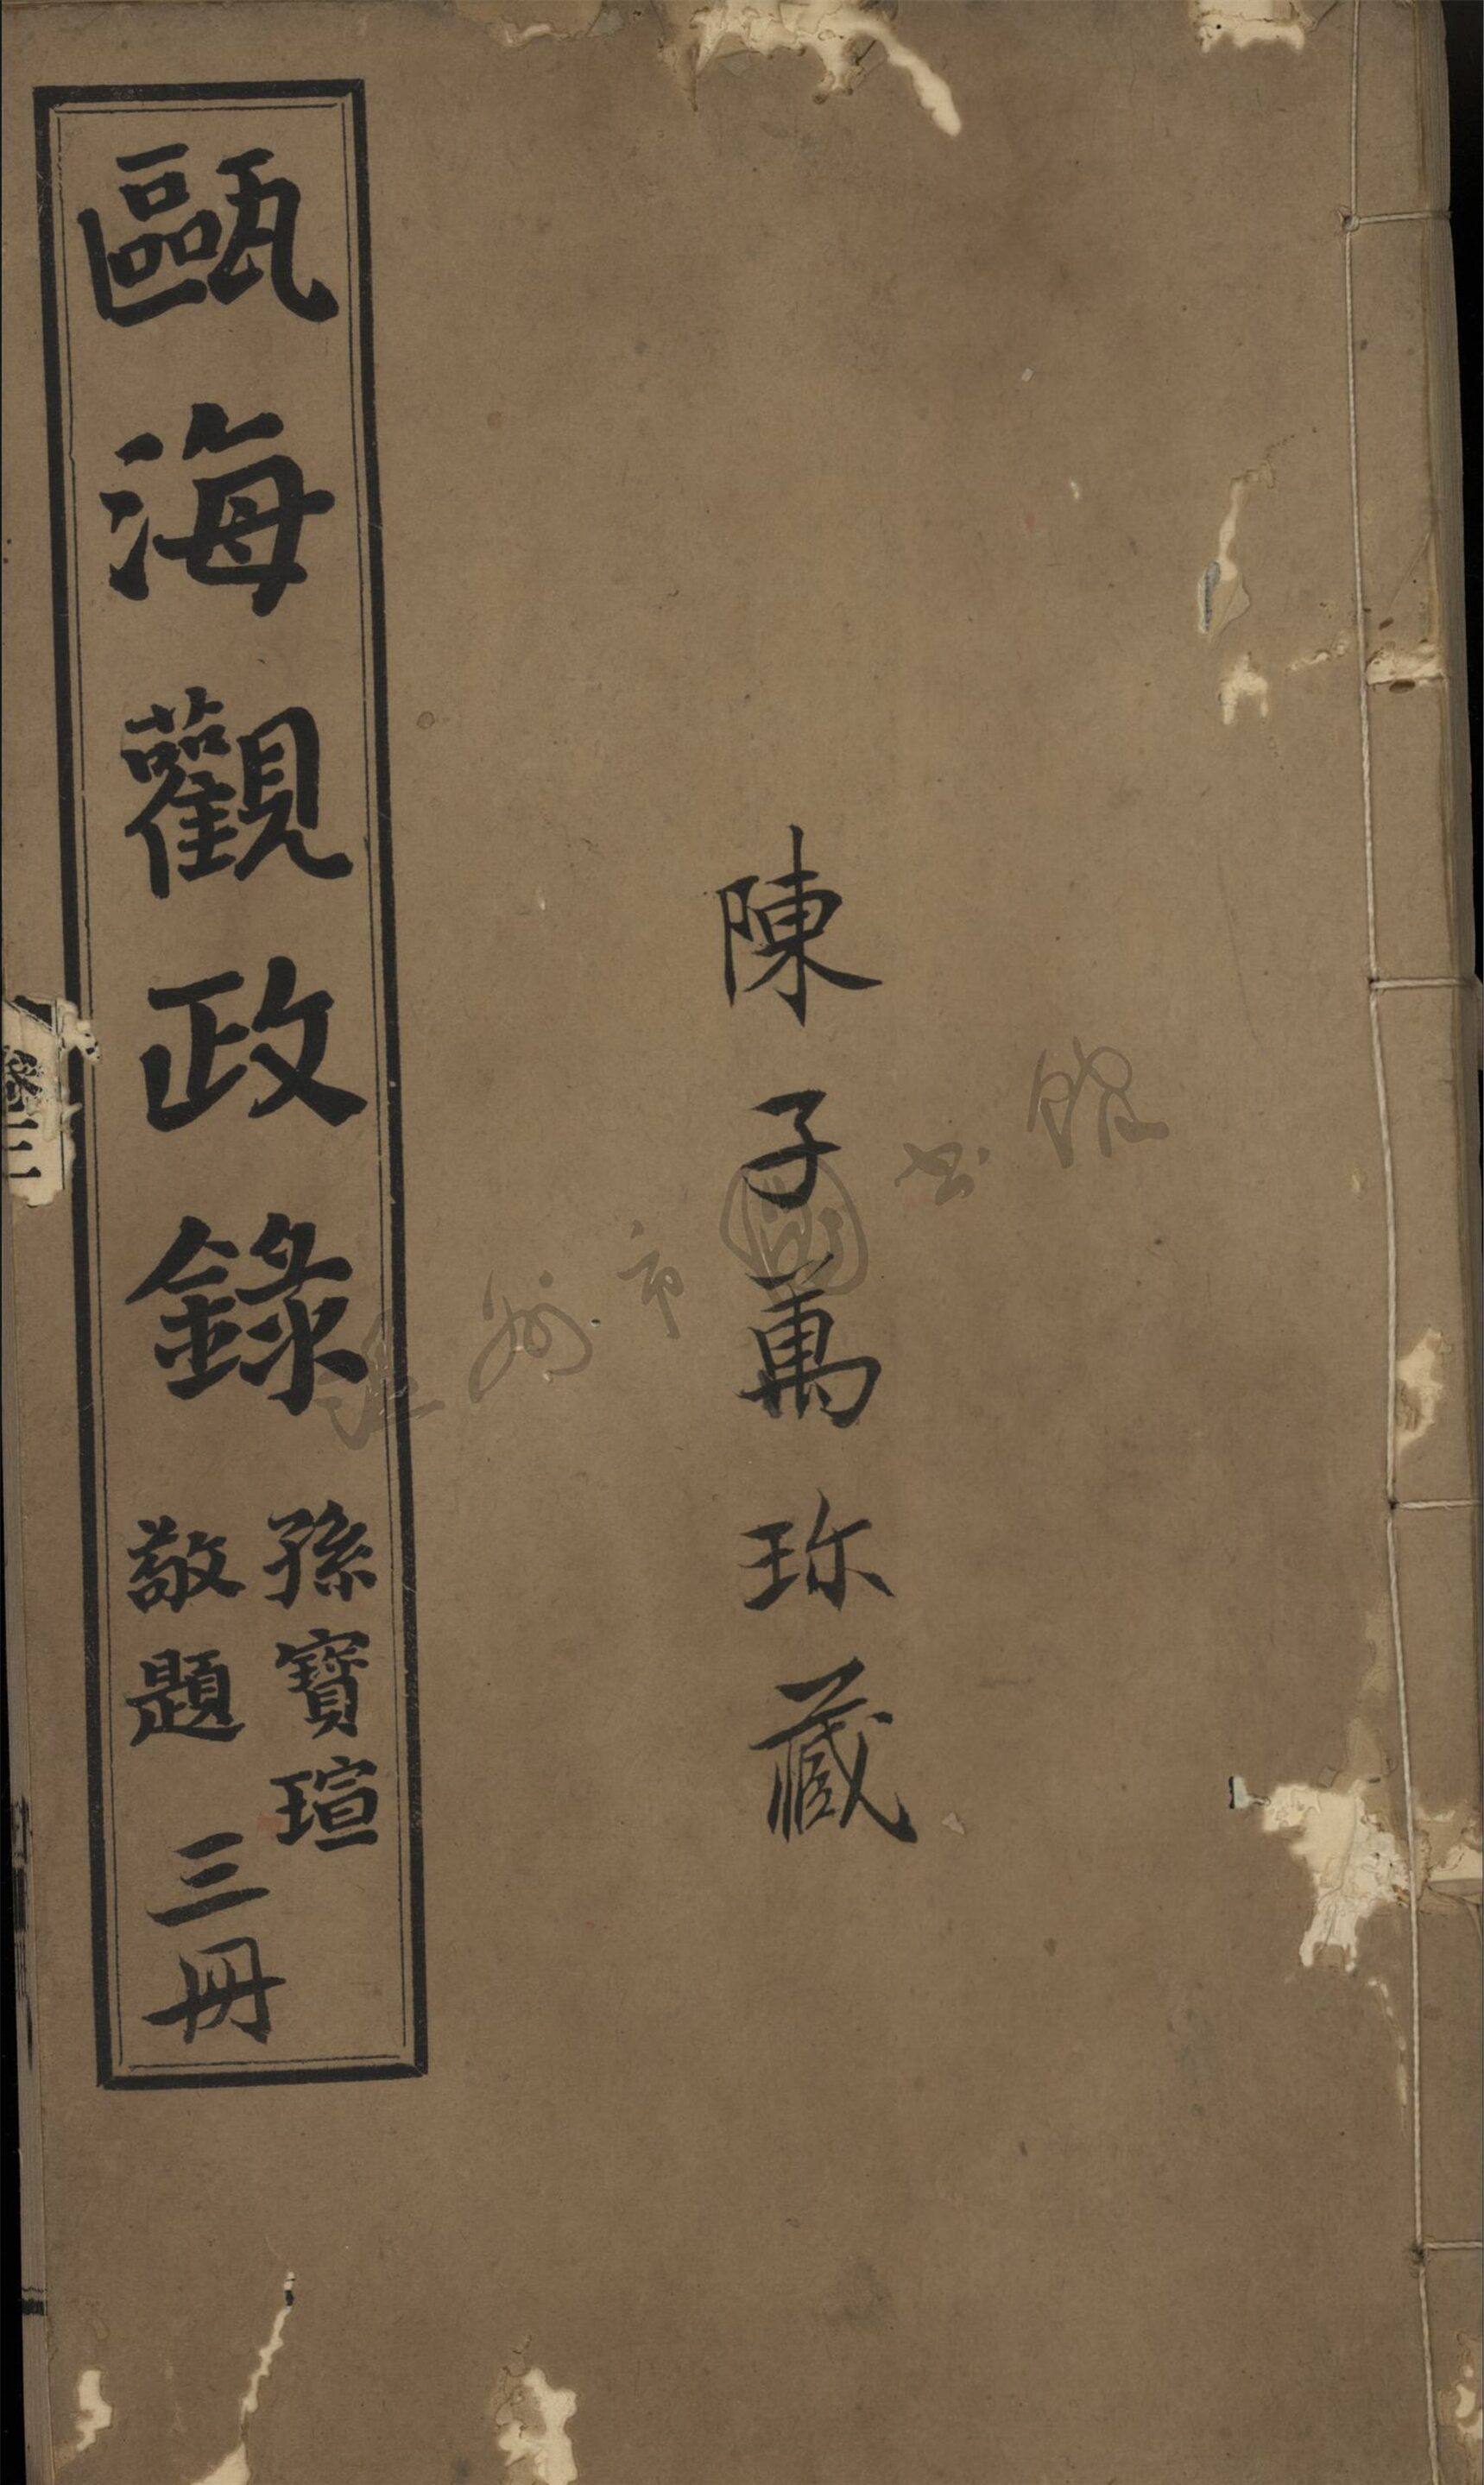 陳子萬珎藏
甌海觀政錄
孫寶瑄
敬題
三冊
卷三
温州市圖书館